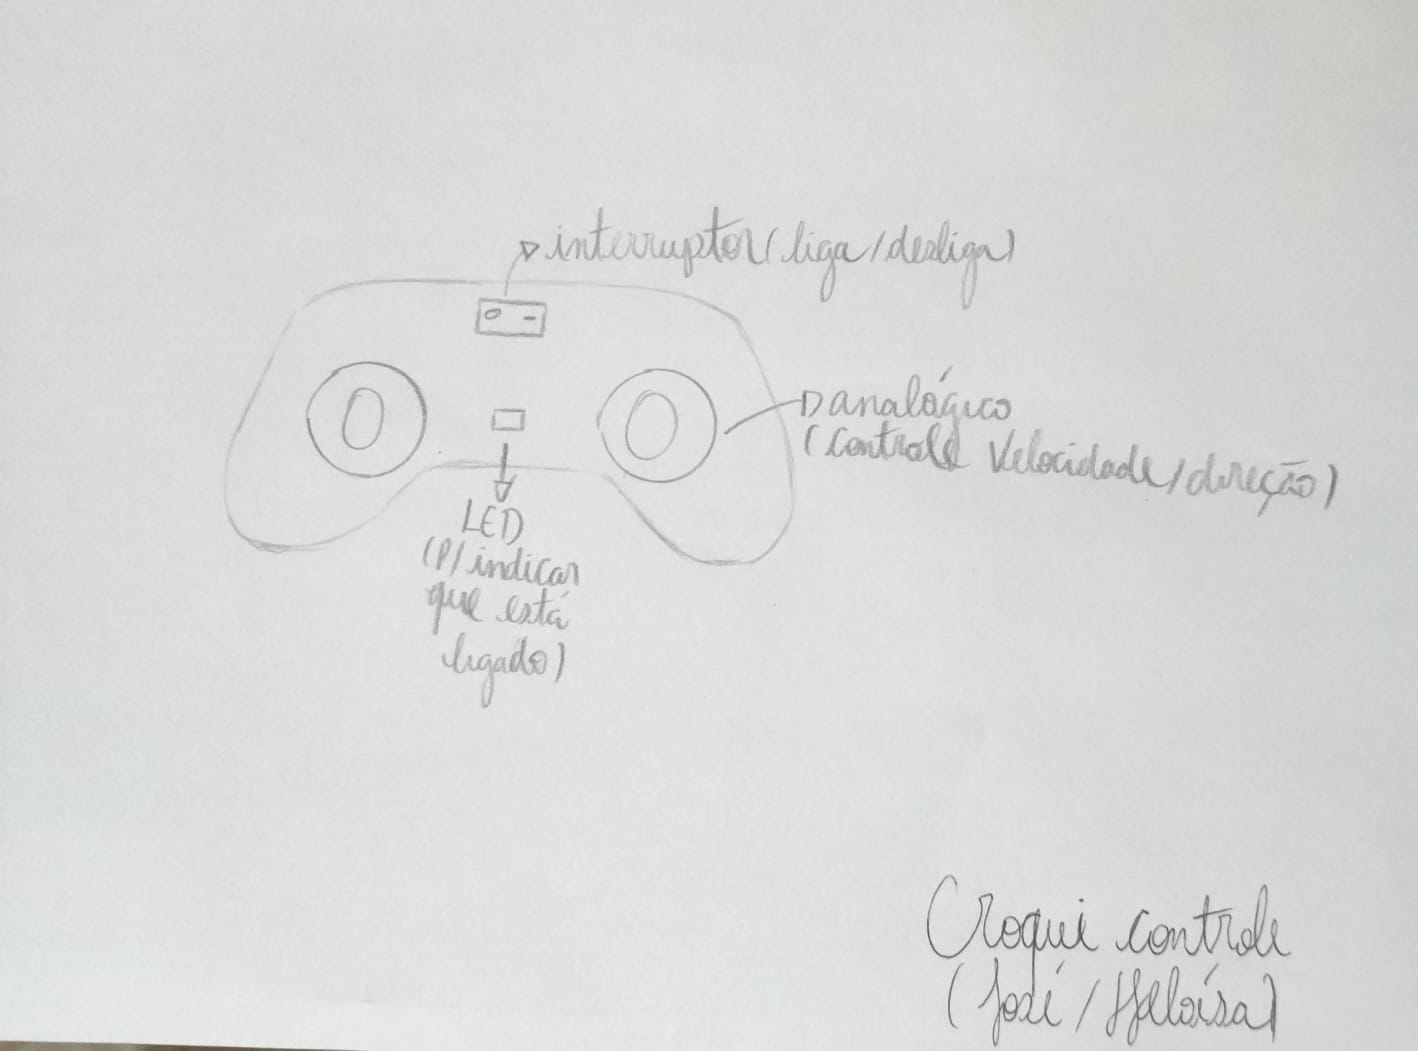 interruptor (liga/desliga)
analógico
(controle Velocidade/direção)
LED
(P/ indicar
que está
ligado)
Croqui controle
(José/Heloísa)